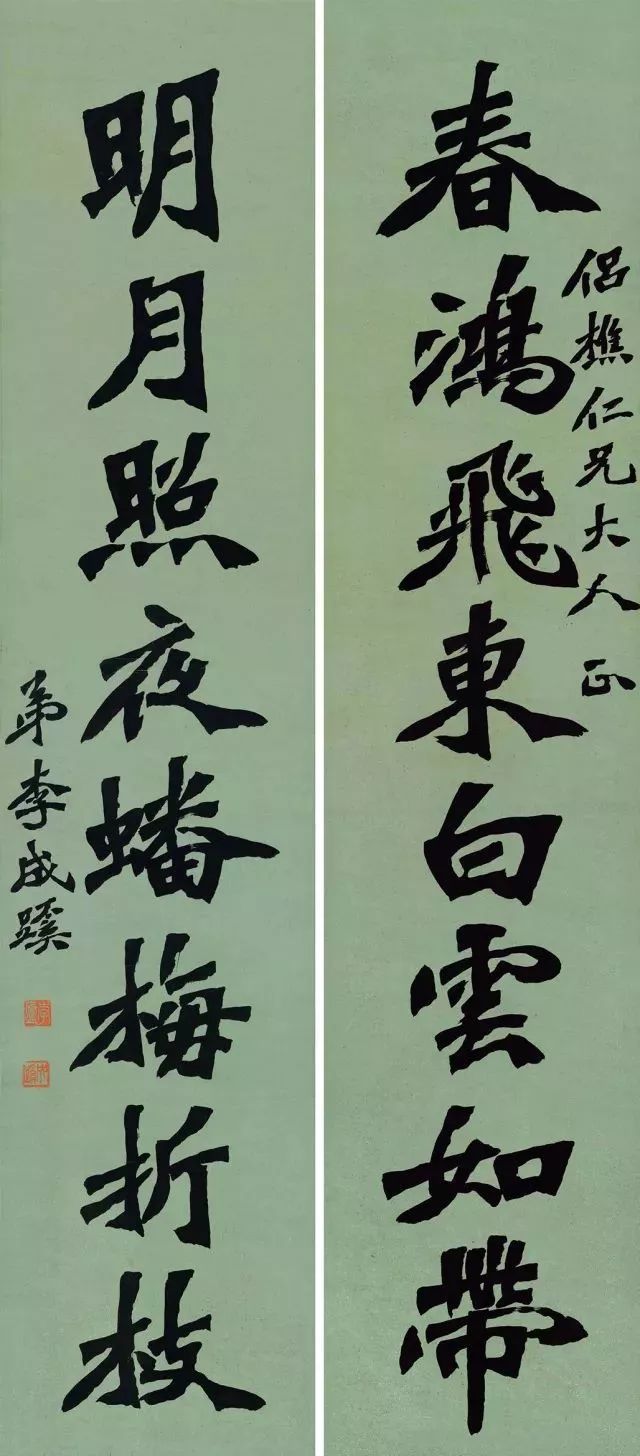 侶樵仁兄大人 正
春鴻飛東白雲如帶
明月照夜蟠梅折枝
弟李成蹊